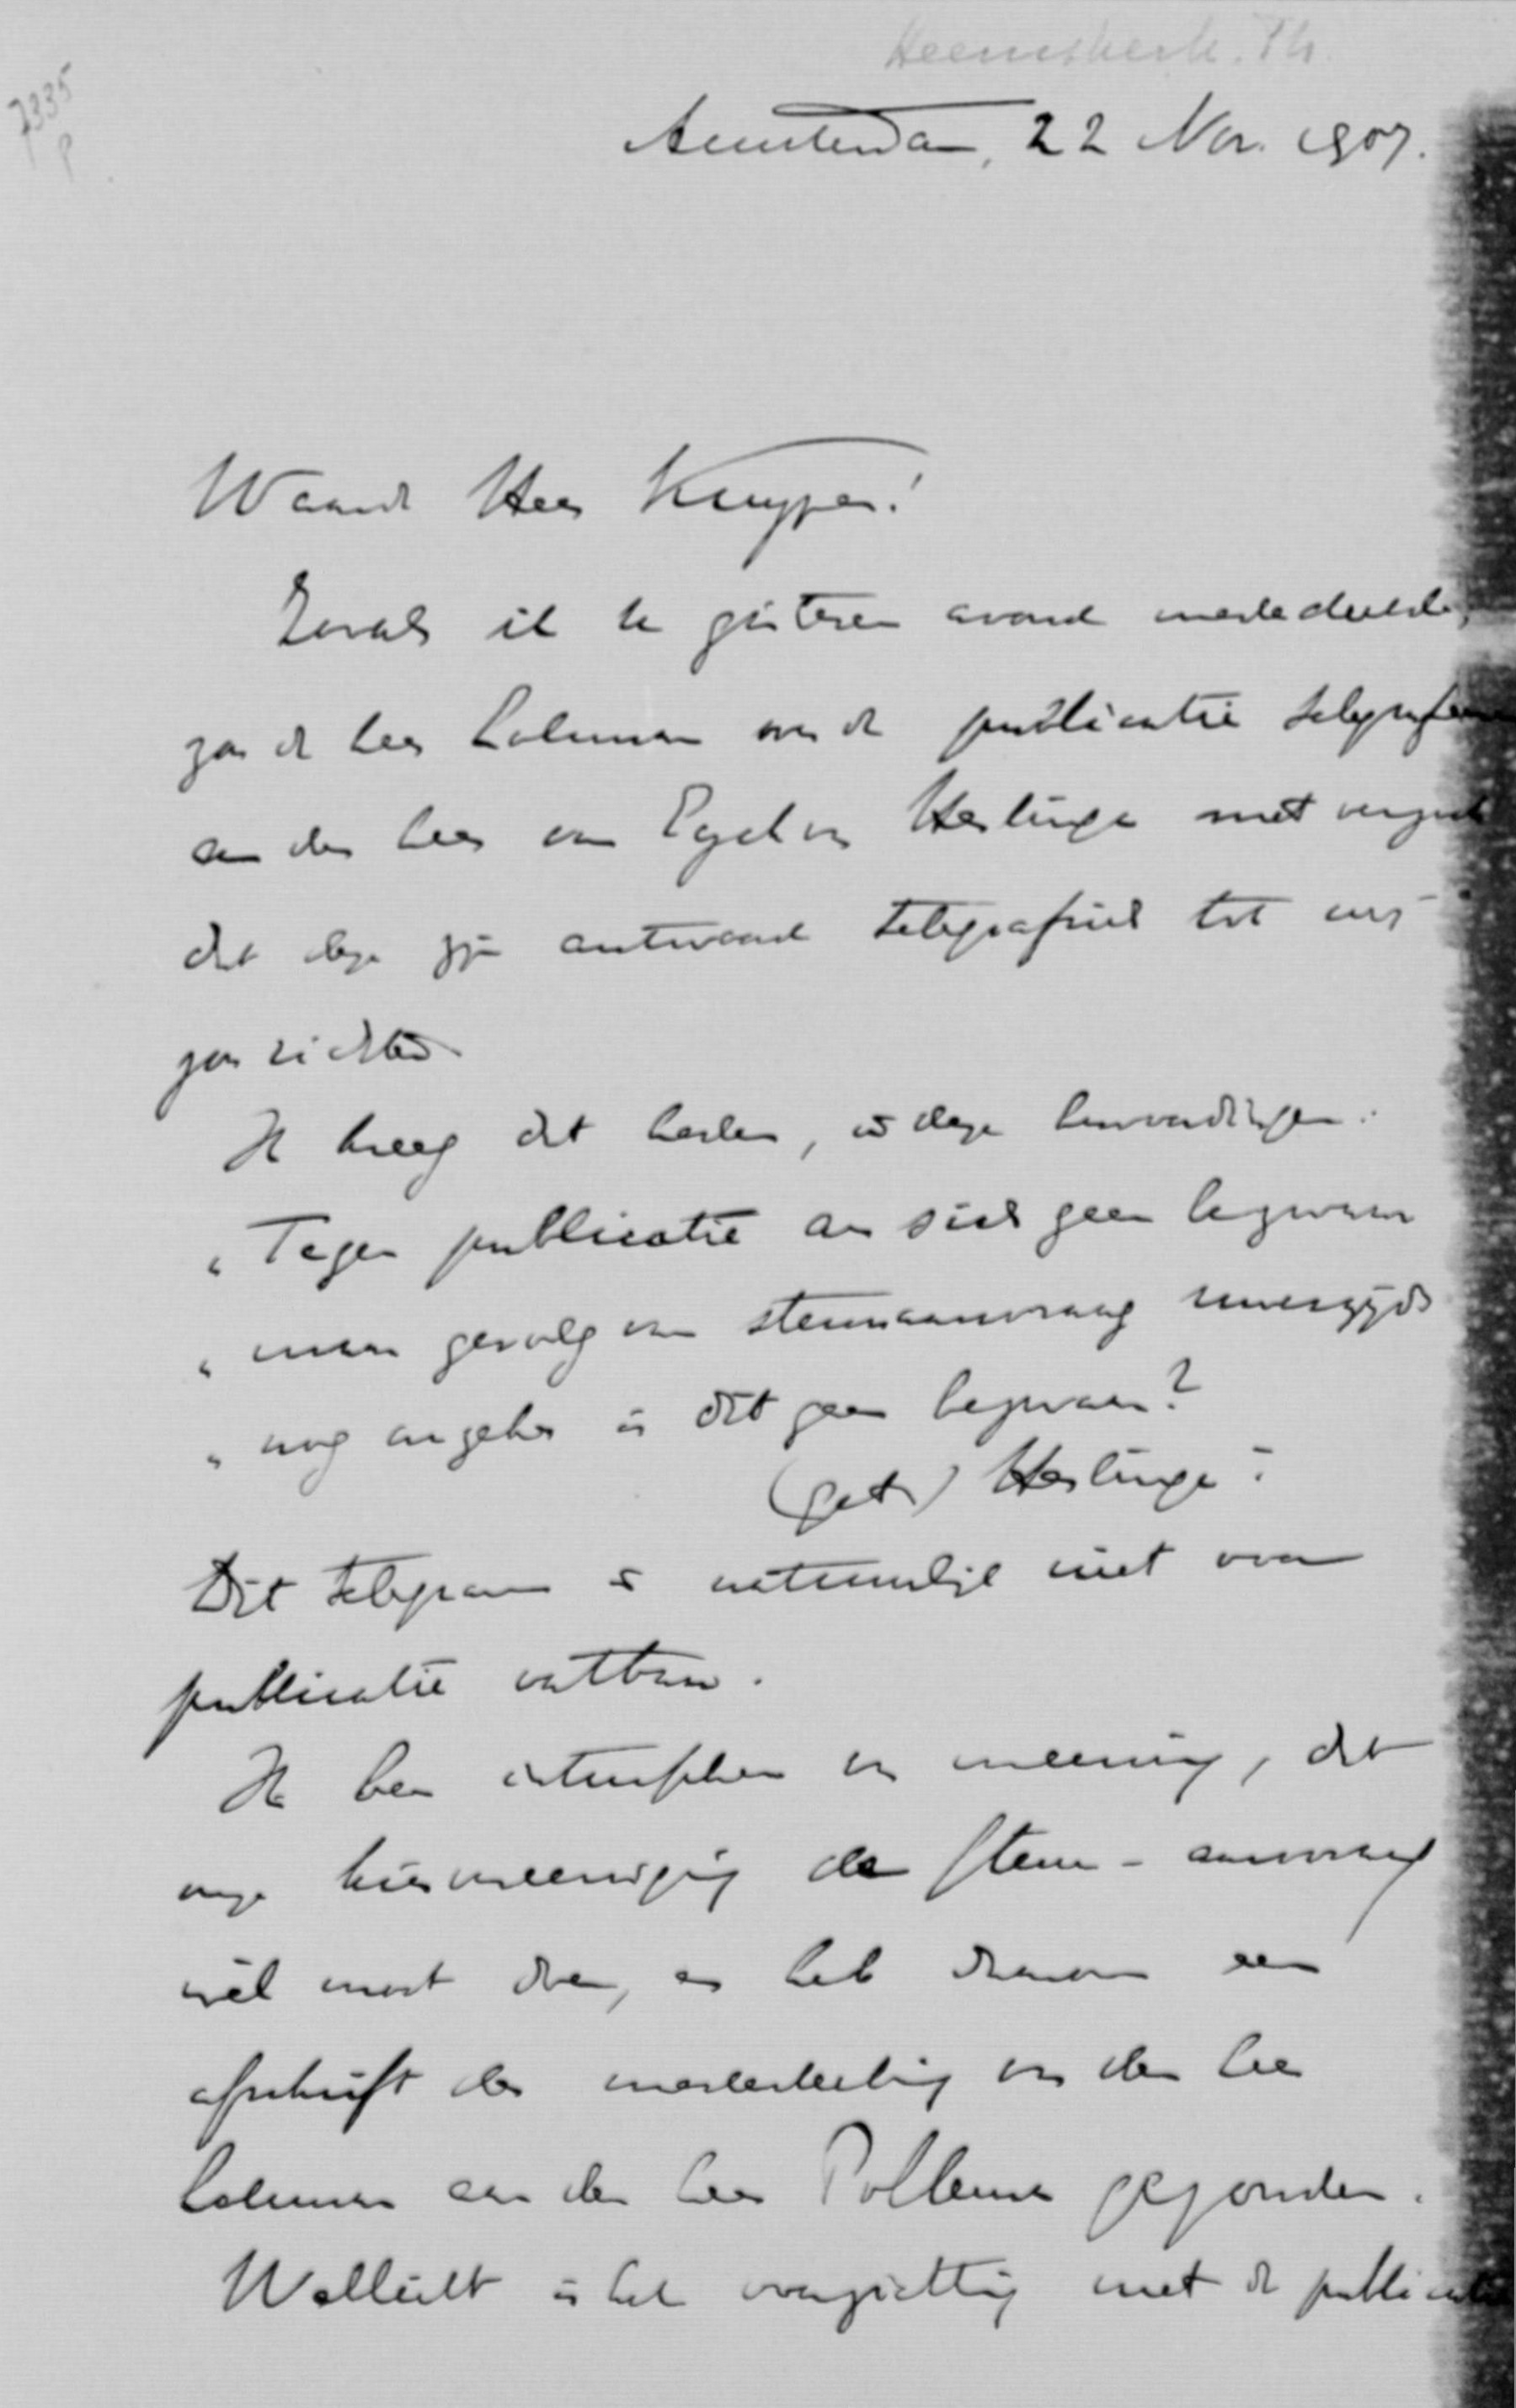 Heemskerk. Th.
7335
P
Amsterdam, 22 Nov. 1907.
Waarde Heer Kuyper!
Zooals ik u gisteren avond mededeelde,
zou de heer Lohman over de publicatie telegrafeeren
aan den heer van Eysden Heslinga met verzoek
dat deze zijn antwoord telegrafisch tot mij
zou richten
Ik kreeg dat heden, in deze bewoordingen:
"Tegen publicatie an sich geen bezwaar
" maar gevolg van stemaanvraag
" nog is dat geen bezwaar?
(get) Heslinga"
Dit telegram is natuurlijk niet voor
publicatie vatbaar.
Ik ben intusschen van meening, dat
onze kiesvereeniging de stem-aanvraag
wèl moet doen, en heb daarom een
afschrift der mededeeling van den heer
Lohman aan den heer Pollema gezonden.
Wellicht is het voorzichtig met de publicatie